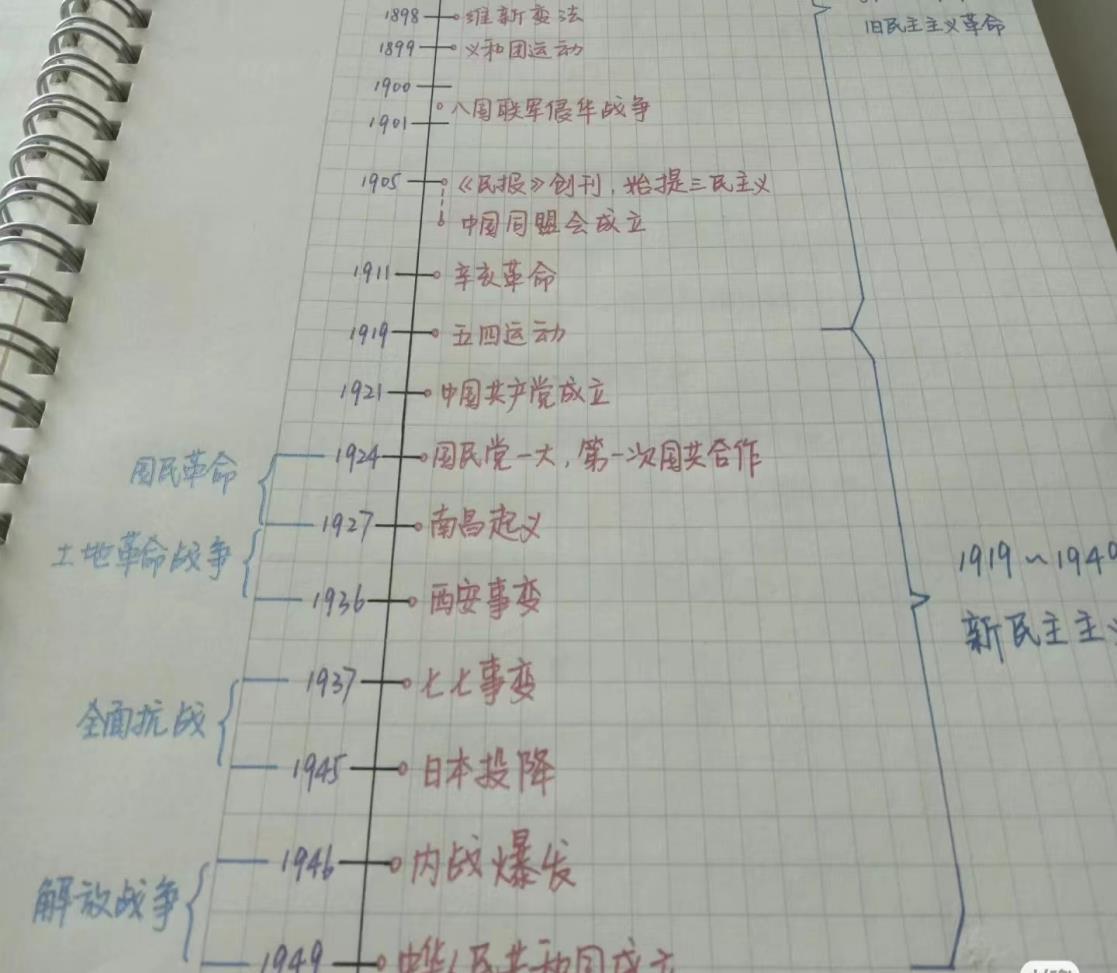 1898 维新变法
旧民主主义革命
1899 义和团运动
1900
八国联军侵华战争
1901
1905 《民报》创刊，始提三民主义
中国同盟会成立
1911 辛亥革命
1919 五四运动
1921 中国共产党成立
国民革命
1924 国民党一大，第一次国共合作
1927 南昌起义
土地革命战争
1936 西安事变
1919~194
新民主主
1937 七七事变
全面抗战
1945 日本投降
1946 内战爆发
解放战争
1949 中华人民共和国成立